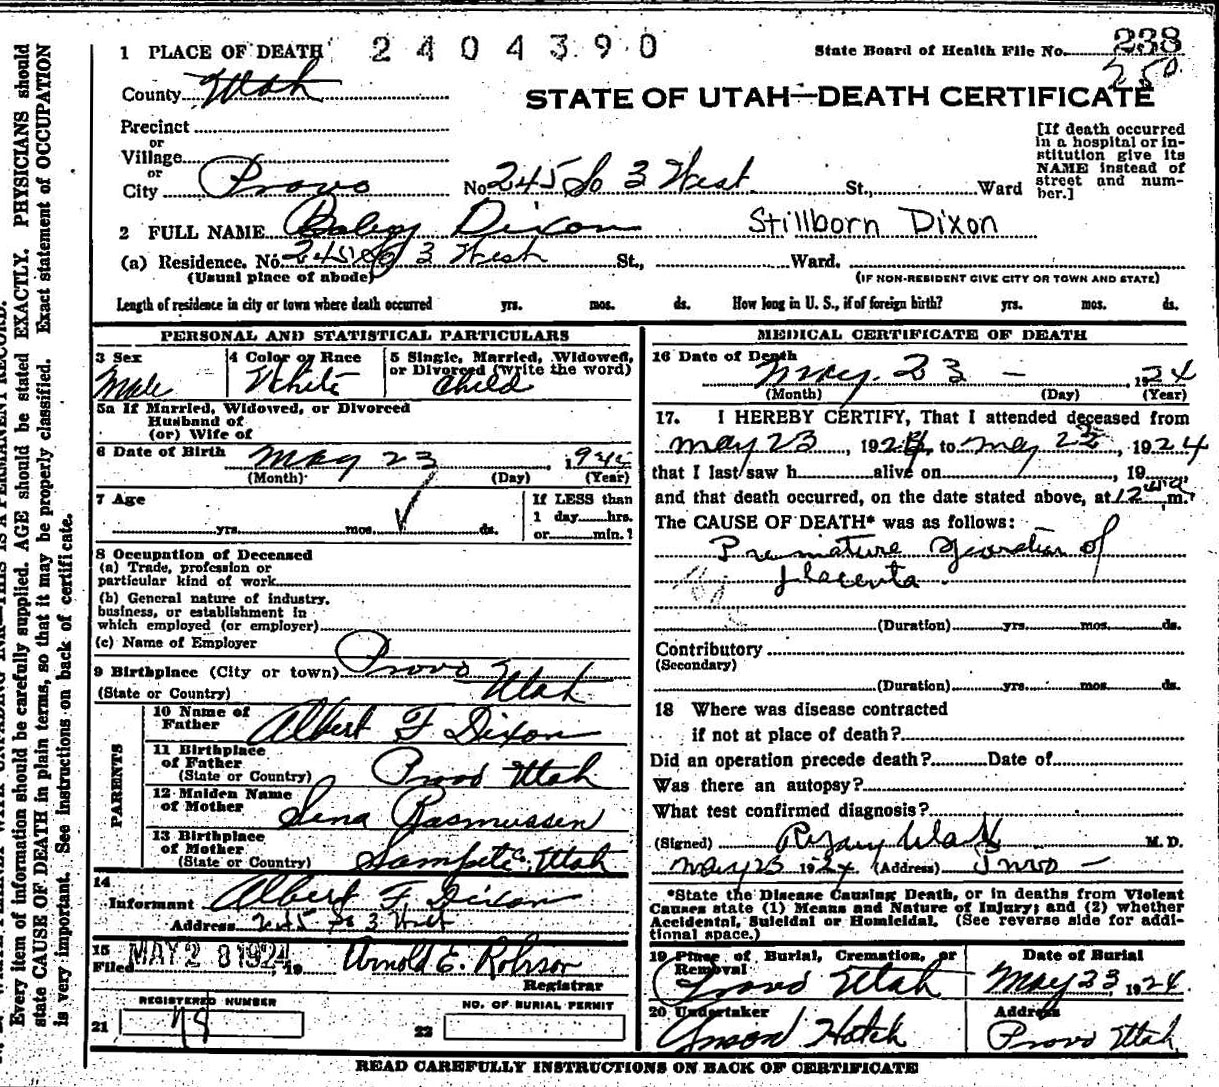 1 PLACE OF DEATH 2404390 State Board of Health File No. 238
250
County Utah
STATE OF UTAH—DEATH CERTIFICATE
Precinct
or
Village
or
City Provo No. 245 So 3 West St., Ward
[If death occurred
in a hospital or in-
stitution give its
NAME instead of
street and num-
ber.]
2 FULL NAME Dixon Stillborn Dixon
(a) Residence. No. 245 So 3 West St., Ward.
(Usual place of abode) (IF NON-RESIDENT GIVE CITY OR TOWN AND STATE)
Length of residence in city or town where death occurred yrs. mos. ds. How long in U. S., if of foreign birth? yrs. mos. ds.
PERSONAL AND STATISTICAL PARTICULARS
3 Sex 4 Color or Race 5 Single, Married, Widowed,
or Divorced (write the word)
Male White Child
5a If Married, Widowed, or Divorced
Husband of
(or) Wife of
6 Date of Birth May 23, 19
(Month) (Day) (Year)
7 Age If LESS than
1 day hrs.
yrs. mos. ds. or min.?
8 Occupation of Deceased
(a) Trade, profession or
particular kind of work
(b) General nature of industry,
business, or establishment in
which employed (or employer)
(c) Name of Employer
9 Birthplace (City or town) Provo
(State or Country) Utah
PARENTS
10 Name of
Father Albert F Dixon
11 Birthplace
of Father
(State or Country) Provo Utah
12 Maiden Name
of Mother Sena Rasmussen
13 Birthplace
of Mother
(State or Country) Sampete, Utah
14
Informant Albert F. Dixon
Address 245 So 3 West
15
Filed MAY 28 1924, 19 Arnold E. Robison
Registrar
REGISTERED NUMBER NO. OF BURIAL PERMIT
21 78 22
MEDICAL CERTIFICATE OF DEATH
16 Date of Death
May 23 – , 1924
(Month) (Day) (Year)
17. I HEREBY CERTIFY, That I attended deceased from
May 23, 1924, to May 23, 1924
that I last saw h alive on , 19 ,
and that death occurred, on the date stated above, at 12 m.
The CAUSE OF DEATH* was as follows:
Premature of
placenta
(Duration) yrs. mos. ds.
Contributory
(Secondary)
(Duration) yrs. mos. ds.
18 Where was disease contracted
if not at place of death?
Did an operation precede death? Date of
Was there an autopsy?
What test confirmed diagnosis?
(Signed) M. D.
May 23 1924 (Address) Provo –
*State the Disease Causing Death, or in deaths from Violent
Causes state (1) Means and Nature of Injury; and (2) whether
Accidental, Suicidal or Homicidal. (See reverse side for addi-
tional space.)
19 Place of Burial, Cremation, or Date of Burial
Removal
Provo Utah May 23, 1924
20 Undertaker Address
Hatch Provo Utah
READ CAREFULLY INSTRUCTIONS ON BACK OF CERTIFICATE
Every item of information should be carefully supplied. AGE should be stated EXACTLY. PHYSICIANS should
state CAUSE OF DEATH in plain terms, so that it may be properly classified. Exact statement of OCCUPATION
is very important. See instructions on back of certificate.